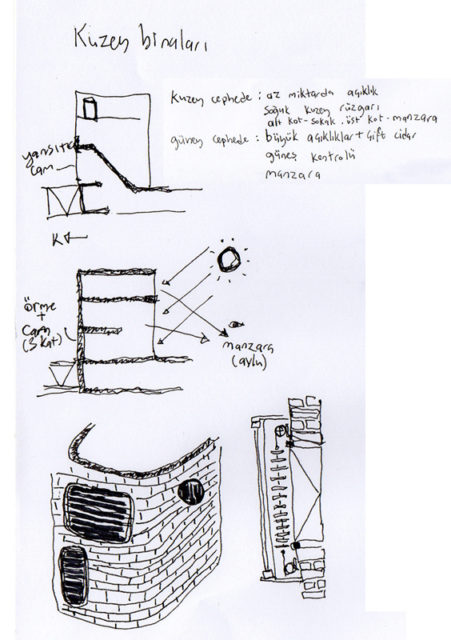 Kuzey binaları
Kuzey cephede : az miktarda açıklık
soğuk kuzey rüzgarı
alt kot-sokak. üst kot-manzara
güney cephede : büyük açıklıklar + çift cidar
güneş kontrolü
manzara
yansıtıcı
cam
K
örme
+
cam
(3 kat)
manzara
(avlu)